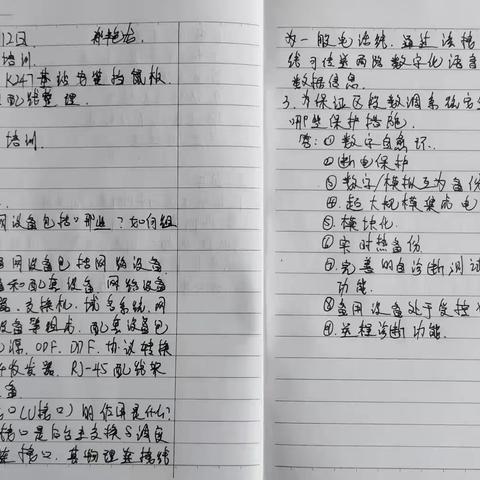 12日
培训
K247基站
配线整理
培训.
网设备包括哪些？如何组
网设备包括网络设备、
备和配套设备.网络设备
器、交换机、域名系统、网
设备等组成.配套设备包
源、ODF、DDF、协议转换
收发器、RJ-45配线架
备
口（U接口）的作用是什么？
接口是
接口.其物理连接线
为一般电话线.通过该接
线可传送两路数字化语音
数据信息.
3.为保证区段数调系统安全
哪些保护措施.
答：①数字自愈环.
②断电保护
③数字/模拟互为备份
④超大规模集成电
⑤模块化.
⑥实时热备份
⑦完善的自诊断测试
功能.
⑧备用设备处于受控
⑨远程诊断功能.